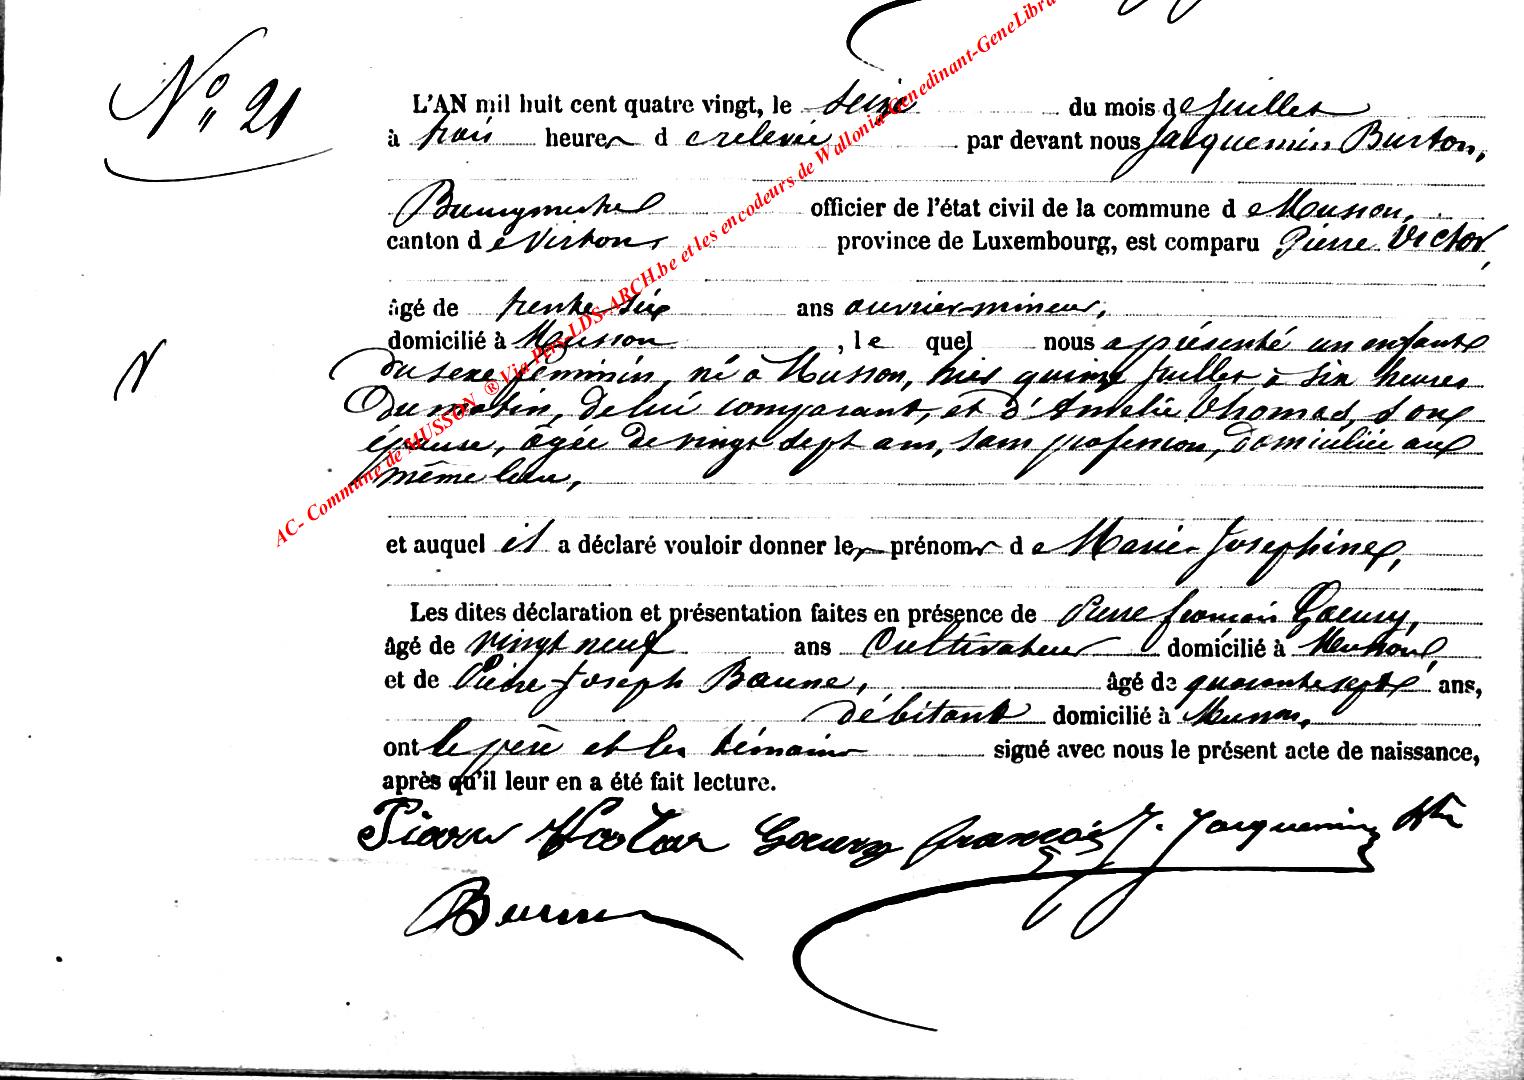 N° 21
L'AN mil huit cent quatre vingt, le seize du mois de Juillet
à trois heures de relevée par devant nous Jacquemin Burton,
Bourgmestre officier de l'état civil de la commune de Musson,
canton de Virton, province de Luxembourg, est comparu Pierre Victor,
âgé de trente six ans ouvrier-mineur,
domicilié à Musson , le quel nous a présenté un enfant
du sexe féminin, né à Musson, hier quinze Juillet à six heures
du matin, de lui comparant, et d'Amélie Thomas, son
épouse, âgée de vingt sept ans, sans profession, domiciliée au
même lieu,
et auquel il a déclaré vouloir donner les prénoms de Marie-Josephine,
Les dites déclaration et présentation faites en présence de Pierre françois Goeury,
âgé de vingt neuf ans Cultivateur domicilié à Musson,
et de Pierre-Joseph Baune, âgé de quarante sept ans,
débitant domicilié à Musson,
ont le père et les témoins signé avec nous le présent acte de naissance,
après qu'il leur en a été fait lecture.
Pierre Victor Goeury françois J. Jacquemin Btn
AC- Commune de MUSSON ® Via Pers-LDS-ARCH.be et les encodeurs de Wallonia-Genedinant-GeneLibra